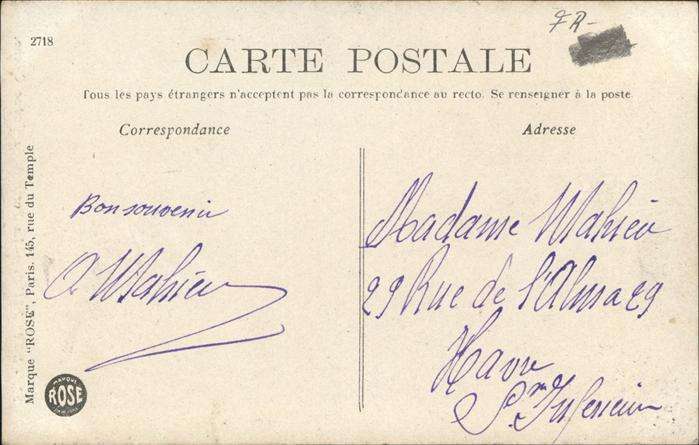 2718
FR-
CARTE POSTALE
Tous les pays étrangers n'acceptent pas la correspondance au recto. Se renseigner à la poste.
Correspondance
Adresse
Bon souvenir
A Mahieu
Madame Mahieu
29 Rue de l'Alma 29
Havre
Sne Inférieure
Marque "ROSE", Paris. 145, rue du Temple
MARQUE
ROSE